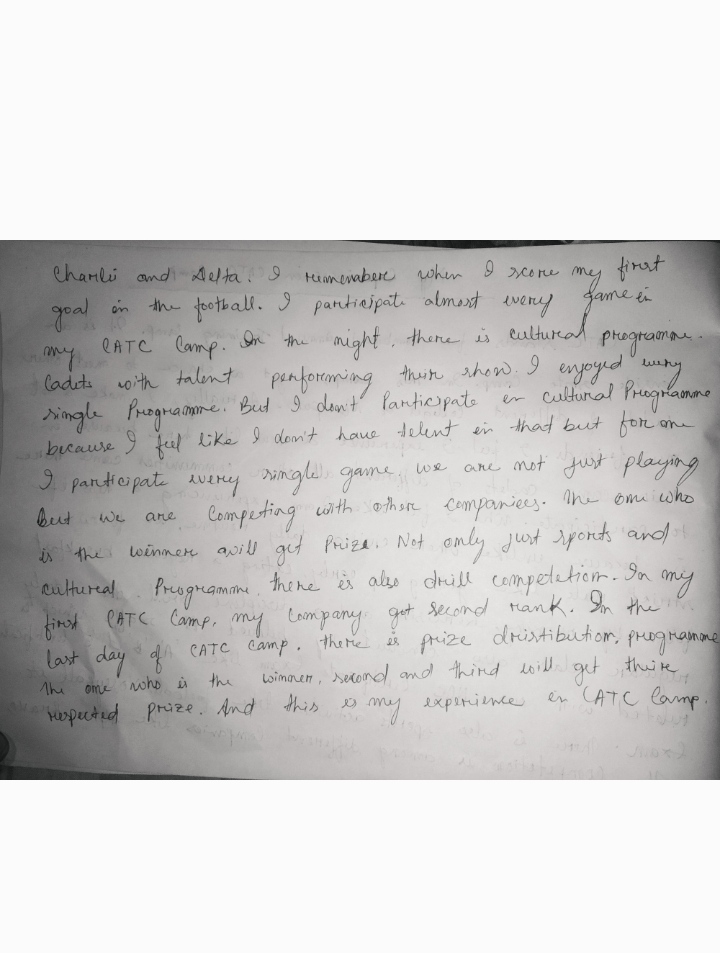 Charlie and Delta. I rumemabere when I score my first
goal in the football. I participate almost every game in
my CATC Camp. In the night, there is cultural programme.
Cadets with talent performing their show. I enjoyed every
single Programme. But I don't Participate in cultural Programme
because I feel like I don't have telent in that but for me
I participate every single game. we are not just playing
But we are Competing with other companiees. The one who
is the winner will get Prize. Not only just sports and
cultural Programme, there is also drill competetion. In my
first CATC Camp, my Company got second rank. In the
last day of CATC camp. there is prize dristibution, programme
The one who is the winner, second and third will get their
respected prize. And this is my experience in CATC Camp.